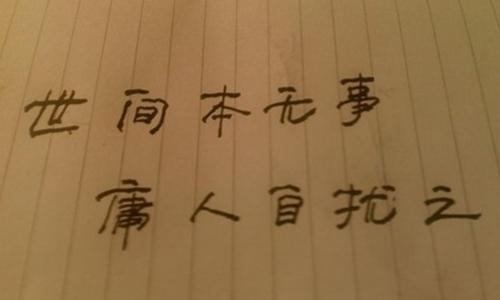 世间本无事
庸人自扰之